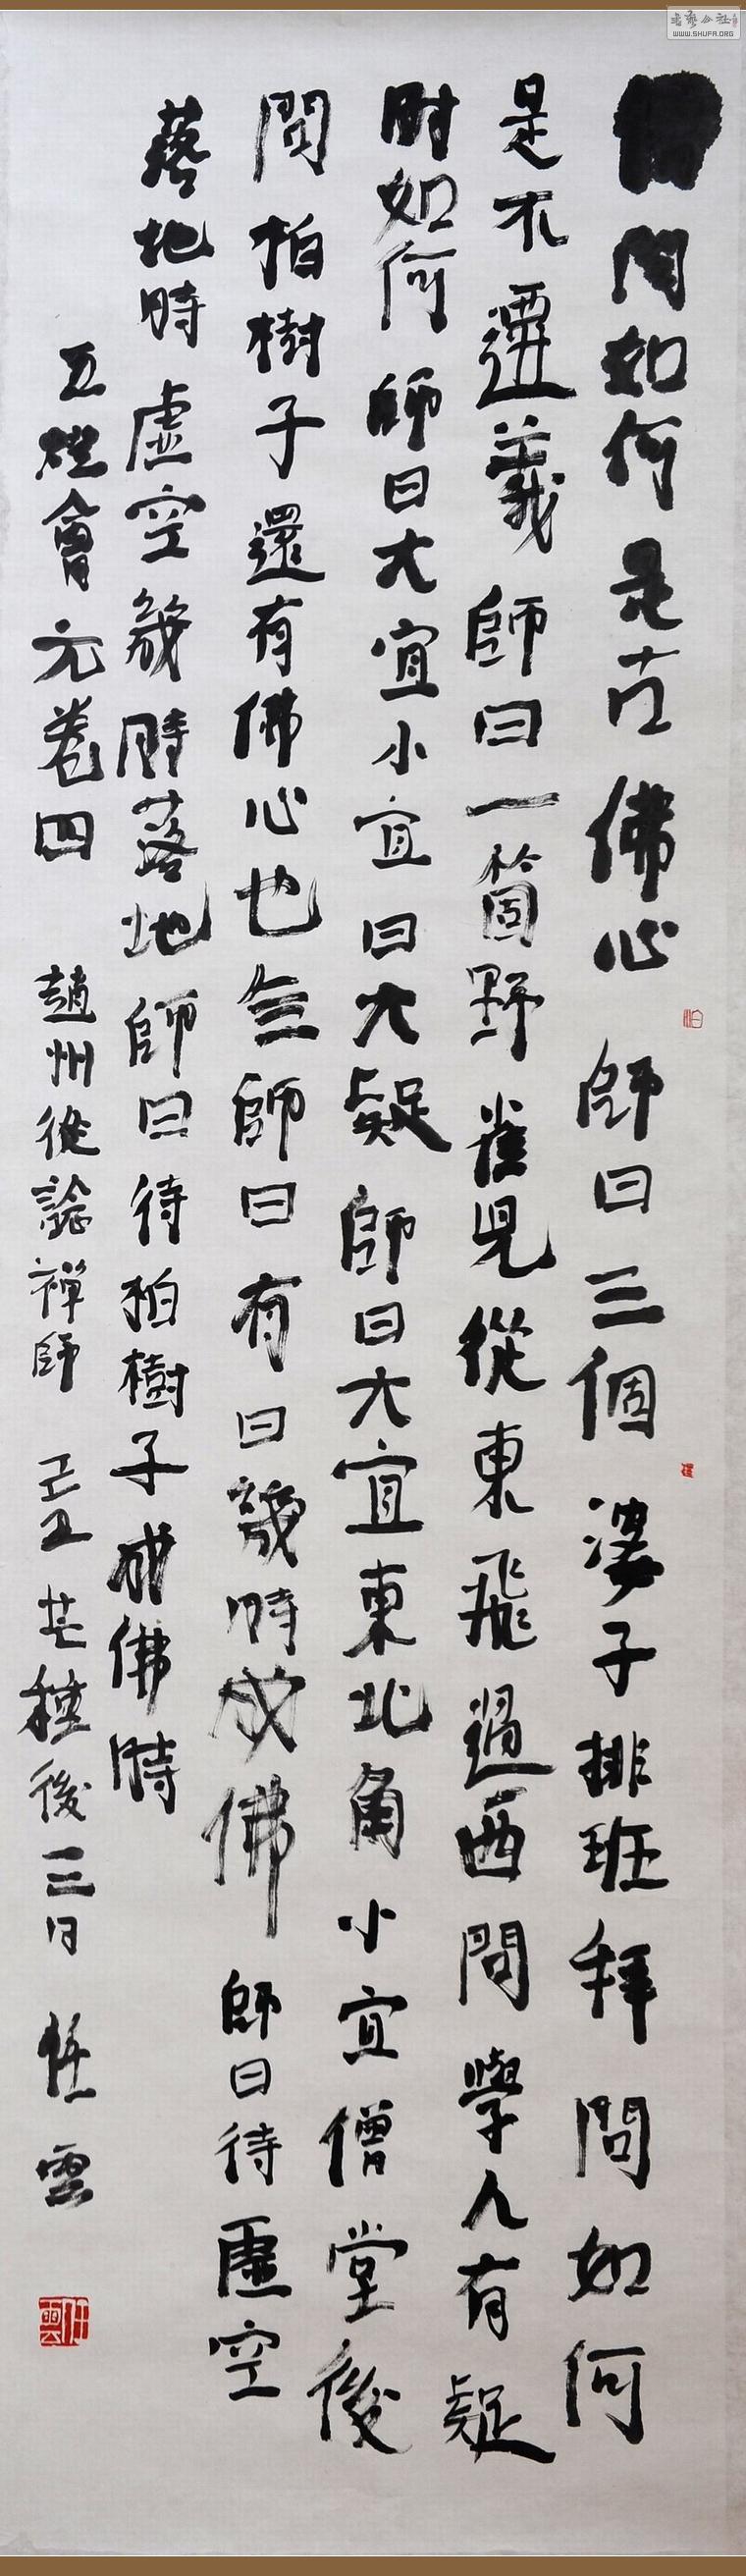 僧問如何是古佛心師曰三個婆子排班拜問如何
是不遷義師曰一箇野雀兒從東飛過西問學人有疑
時如何師曰大宜小宜曰大疑師曰大宜東北角小宜僧堂後
問柏樹子還有佛心也無師曰有曰幾時成佛師曰待虛空
落地時虛空幾時落地師曰待柏樹子成佛時
五燈會元卷四 趙州從諗禪師 芒種後三日 任雲
任雲
WWW.SHUFA.ORG